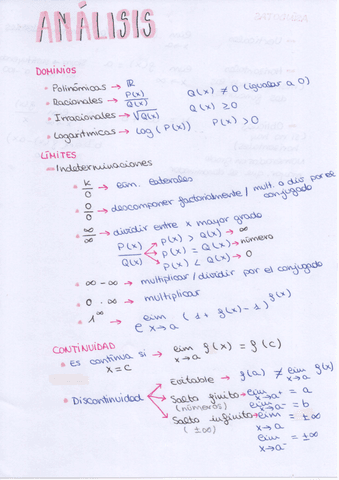 ANÁLISIS
DOMINIOS
• Polinómicas → ℝ
• Racionales → P(x)/Q(x) Q(x) ≠ 0 (igualar a 0)
• Irracionales → √Q(x) Q(x) ≥ 0
• Logarítmicas → log (P(x)) P(x) > 0
LÍMITES
• Indeterminaciones
• k/0 → lim. laterales
• 0/0 → descomponer factorialmente / mult. o div por el conjugado
• ∞/∞ → dividir entre x mayor grado
P(x)/Q(x) → P(x) > Q(x) → ∞
→ P(x) = Q(x) → número
→ P(x) < Q(x) → 0
• ∞ - ∞ → multiplicar / dividir por el conjugado
• 0 · ∞ → multiplicar
• 1^∞ → e^lim x→a (1 + f(x) - 1)^g(x)
CONTINUIDAD
• Es continua si → lim x→a f(x) = f(c)
x = c
• Discontinuidad → Evitable → f(a) ≠ lim x→a f(x)
→ Salto finito (números) → lim x→a⁺ = a
lim x→a⁻ = b
→ Salto infinito (±∞) → lim x→a = ±∞
lim x→a⁻ = ±∞